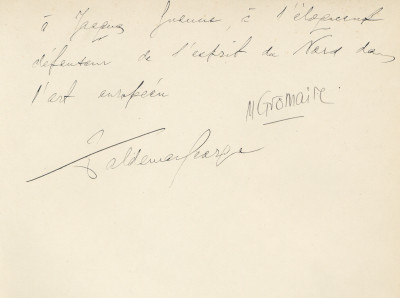 à Jacques , à l'éloquent
défenseur de l'esprit du Nord dans
l'art européen
MGROMAIRE.
Waldemar George